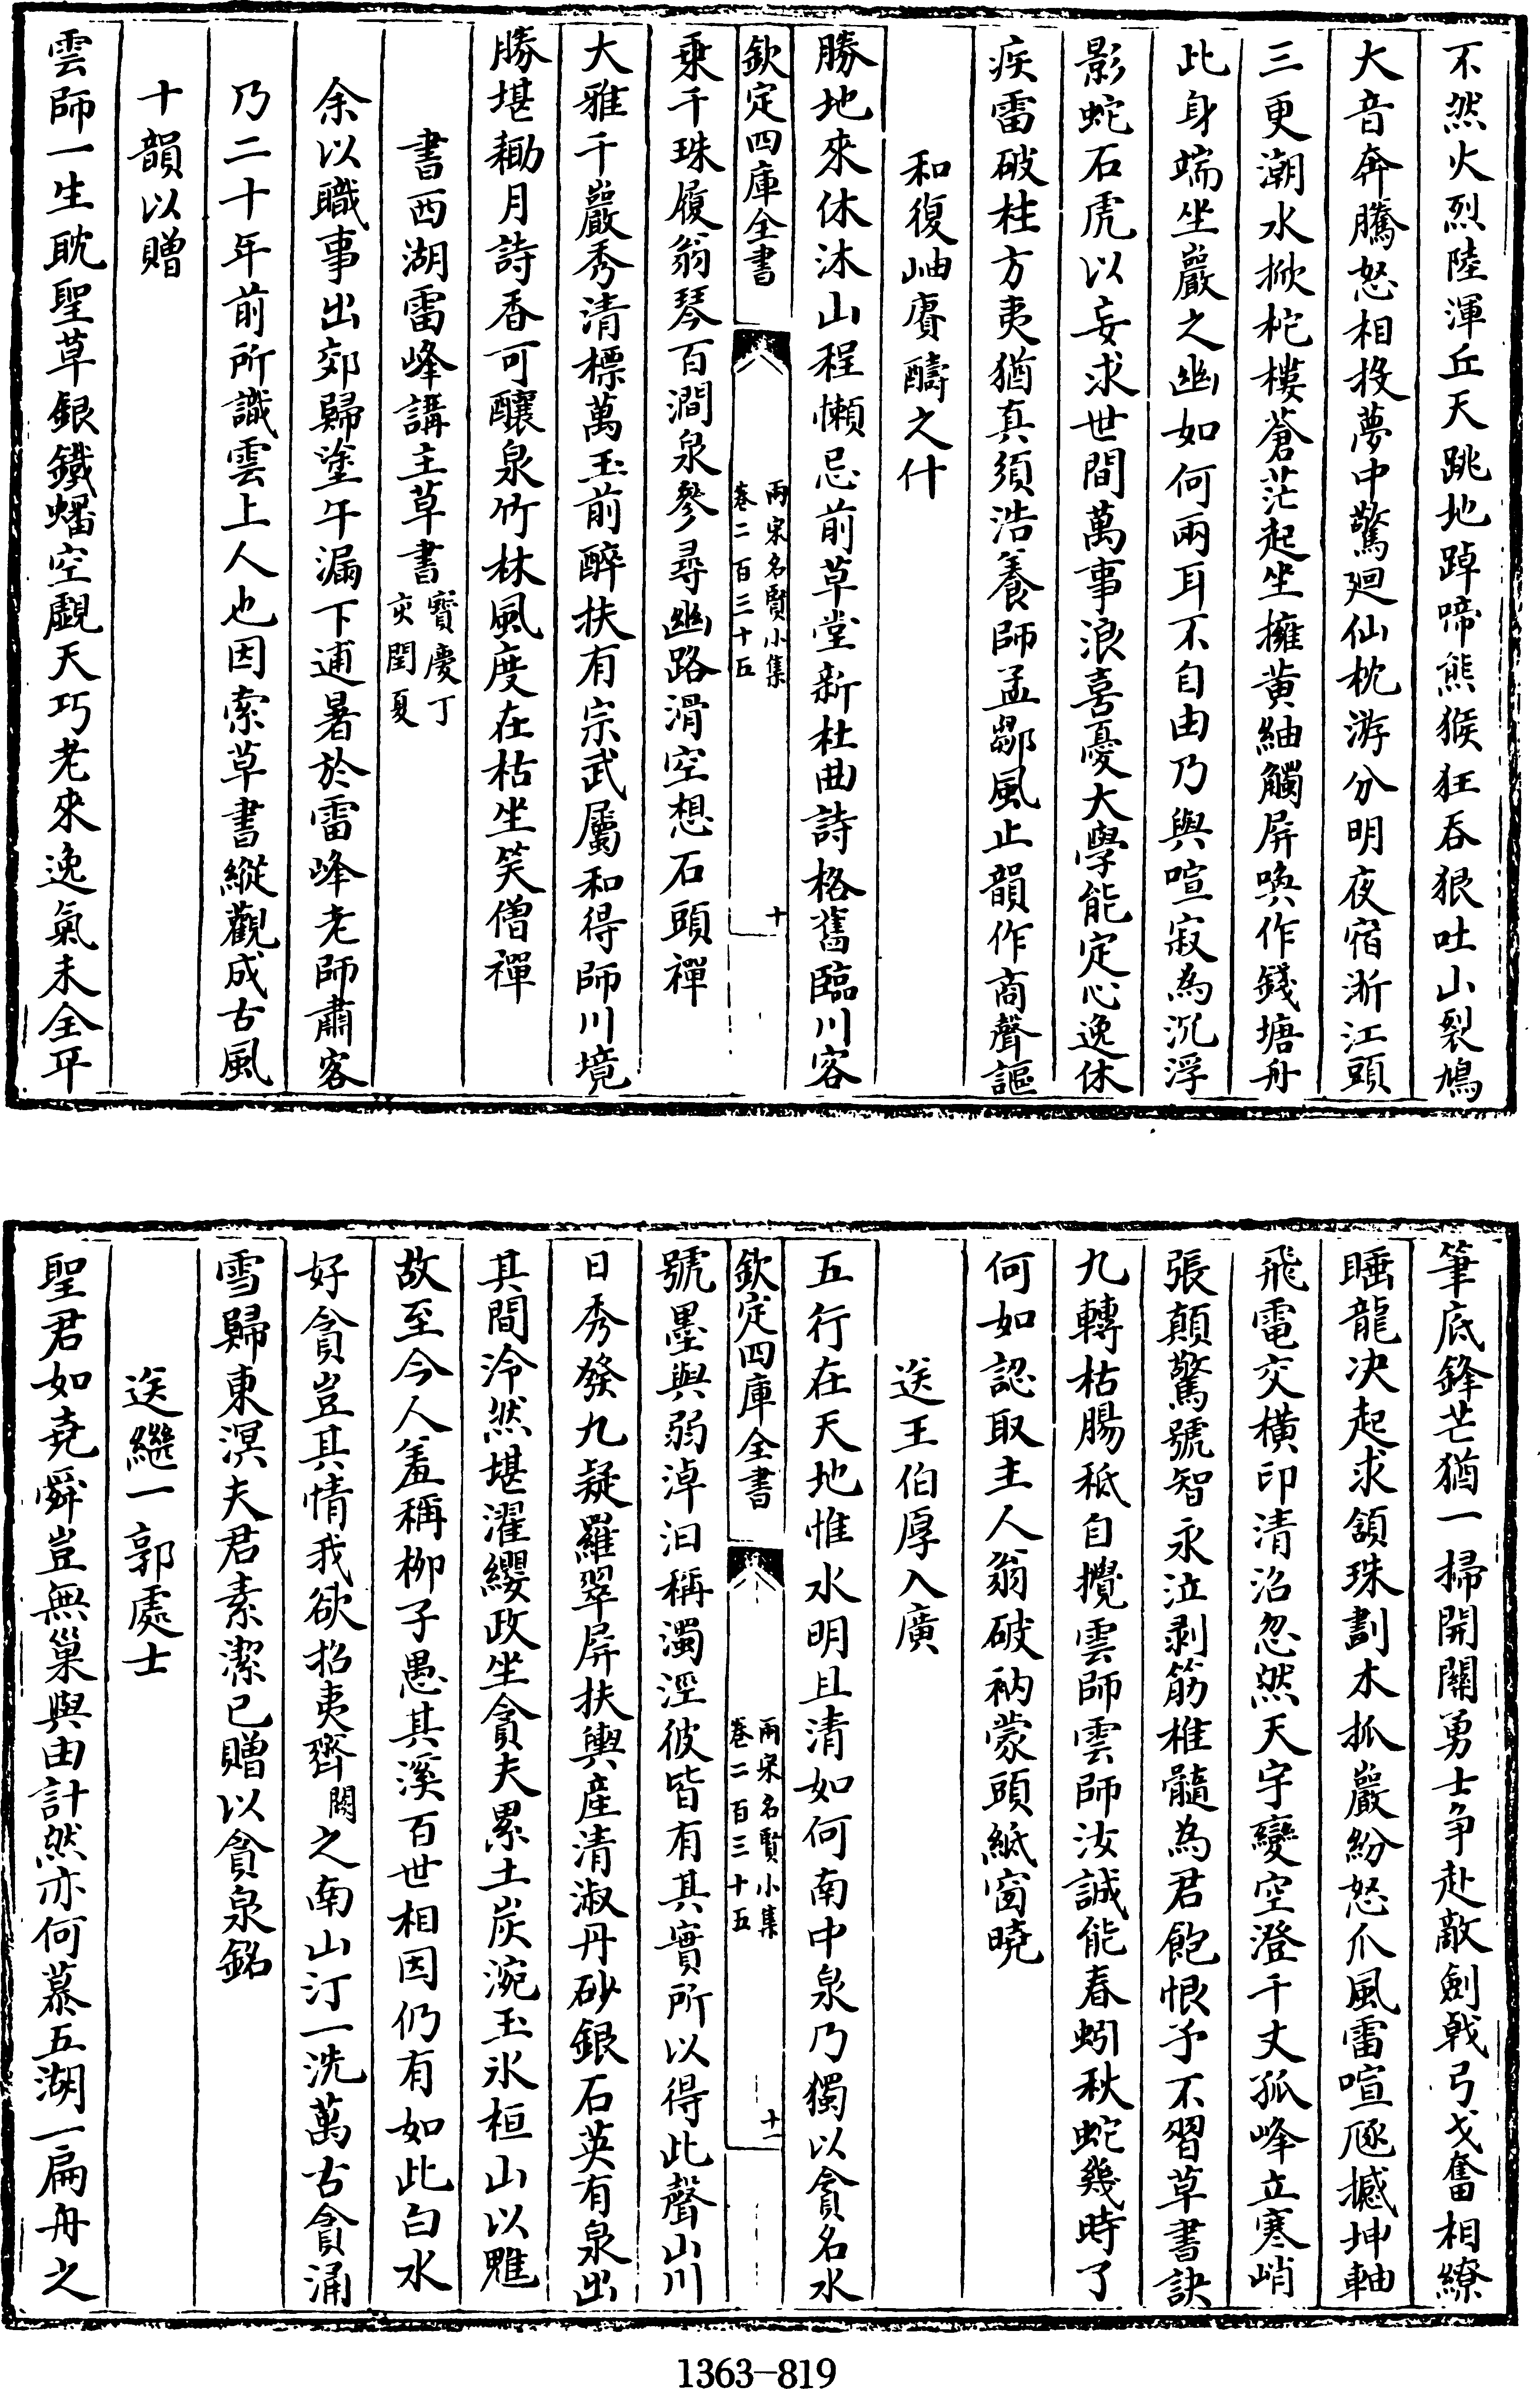 不然火烈陸渾丘天跳地踔啼熊猴狂吞狠吐山裂鳩
大音奔騰怒相投夢中驚廻仙枕游分明夜宿浙江頭
三更潮水掀柁樓蒼茫起坐擁黄紬觸屏喚作錢塘舟
此身端坐巖之幽如何兩耳不自由乃與喧寂為沉浮
影蛇石虎以妄求世間萬事浪喜憂大學能定心逸休
疾雷破柱方夷猶真須浩養師孟鄒風止韻作商聲謳
和復岫賡醻之什
勝地來休沐山程懶忌前草堂新杜曲詩格舊臨川客
欽定四庫全書
兩宋名賢小集
卷二百三十五
十
乗千珠履翁琴百澗泉參尋幽路滑空想石頭禪
大雅千巖秀清標萬玉前醉扶有宗武屬和得師川境
勝堪耡月詩香可釀泉竹林風度在枯坐笑僧禪
書西湖雷峰講主草書寳慶丁
亥閏夏
余以職事出郊歸塗午漏下逋暑於雷峰老師肅客
乃二十年前所識雲上人也因索草書縱觀成古風
十韻以贈
雲師一生耽聖草銀鐵蟠空覷天巧老來逸氣未全平
筆底鋒芒猶一掃開闗勇士争赴敵劍戟弓戈奮相繚
睡龍决起求頷珠劃木抓巖紛怒爪風雷喧豗撼坤軸
飛電交横印清沼忽然天宇變空澄千丈孤峰立寒峭
張顛驚號智永泣剥筋椎髓為君飽恨予不習草書訣
九轉枯腸秪自攪雲師雲師汝誠能春蚓秋蛇幾時了
何如認取主人翁破衲蒙頭紙窗曉
送王伯厚入廣
五行在天地惟水明且清如何南中泉乃獨以貪名水
欽定四庫全書
兩宋名賢小集
卷二百三十五
十一
號墨與弱淖汩稱濁涇彼皆有其實所以得此聲山川
日秀發九疑羅翠屏扶輿產清淑丹砂銀石英有泉出
其間泠然堪濯纓政坐貪夫累土炭涴玉氷桓山以魋
故至今人羞稱柳子愚其溪百世相因仍有如此白水
好貪豈其情我欲招夷齊闕之南山汀一洗萬古貪涌
雪歸東溟夫君素潔已贈以貪泉銘
送繼一郭處士
聖君如堯舜豈無巢與由計然亦何慕五湖一扁舟之
1363-819